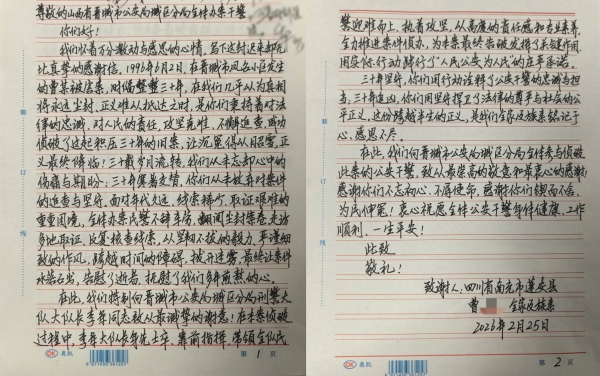 尊敬的山西省晋城市公安局城区分局全体办案干警
你们好！
我们以着百分激动与感恩的心情，写下这封迟来却无
比真挚的感谢信。1996年6月2日，在晋城市凤台小区发生
的曹某被居案，时隔整整三十年，在我们几乎以为真相
将永远尘封，正义难以抵达之时，是你们秉持着对法
律的忠诚，对人民的责任，攻坚克难，不懈追查，成功
侦破了这起积压三十年的旧案，让沉冤得以昭雪，正
义最终降临！三十载岁月流转，我们从未忘却心中的
伤痛与期盼；三十年寒暑交替，你们从未放弃对案件
的追查与坚守。面对年代久远，线索稀少，取证艰难的
重重困境，全体办案民警不辞辛劳，翻阅尘封案卷，走访
多地取证，反复核查线索，以坚韧不拔的毅力，严谨细
致的作风，跨越时间的障碍，拨开迷雾，最终让案件
水落石出，告慰了逝者，抚慰了我们多年煎熬的心。
在此，我们特别向晋城市公安局城区分局刑警大
队大队长李年同志致以最诚挚的谢意！在本案侦破
过程中，李年大队长身先士卒，靠前指挥，带领全队民
装
订
线
奥凯
第1页
警迎难而上，执着攻坚，以高度的责任感和专业素养，
全力推进案件侦办，为本案最终告破发挥了关键作用，
用实际行动践行了“人民公安为人民”的庄严承诺。
三十年坚守，你们用行动诠释了公安干警的忠诚与担
当，三十年追凶，你们用坚守捍卫了法律的尊严与社会的公
平正义，这份跨越半生的正义，是我们全家及族亲铭记于
心，感恩不尽。
在此，我们向晋城市公安局城区分局全体参与侦破
此案的公安干警，致以最崇高的敬意和最衷心的感谢！
感谢你们不忘初心、不辱使命，感谢你们锲而不舍、
为民伸冤！衷心祝愿全体公安干警身体健康、工作
顺利、一生平安！
此致
敬礼！
致谢人：四川省南充市蓬安县
曹 全家及族亲
2026年2月25日
装
订
线
奥凯
第2页